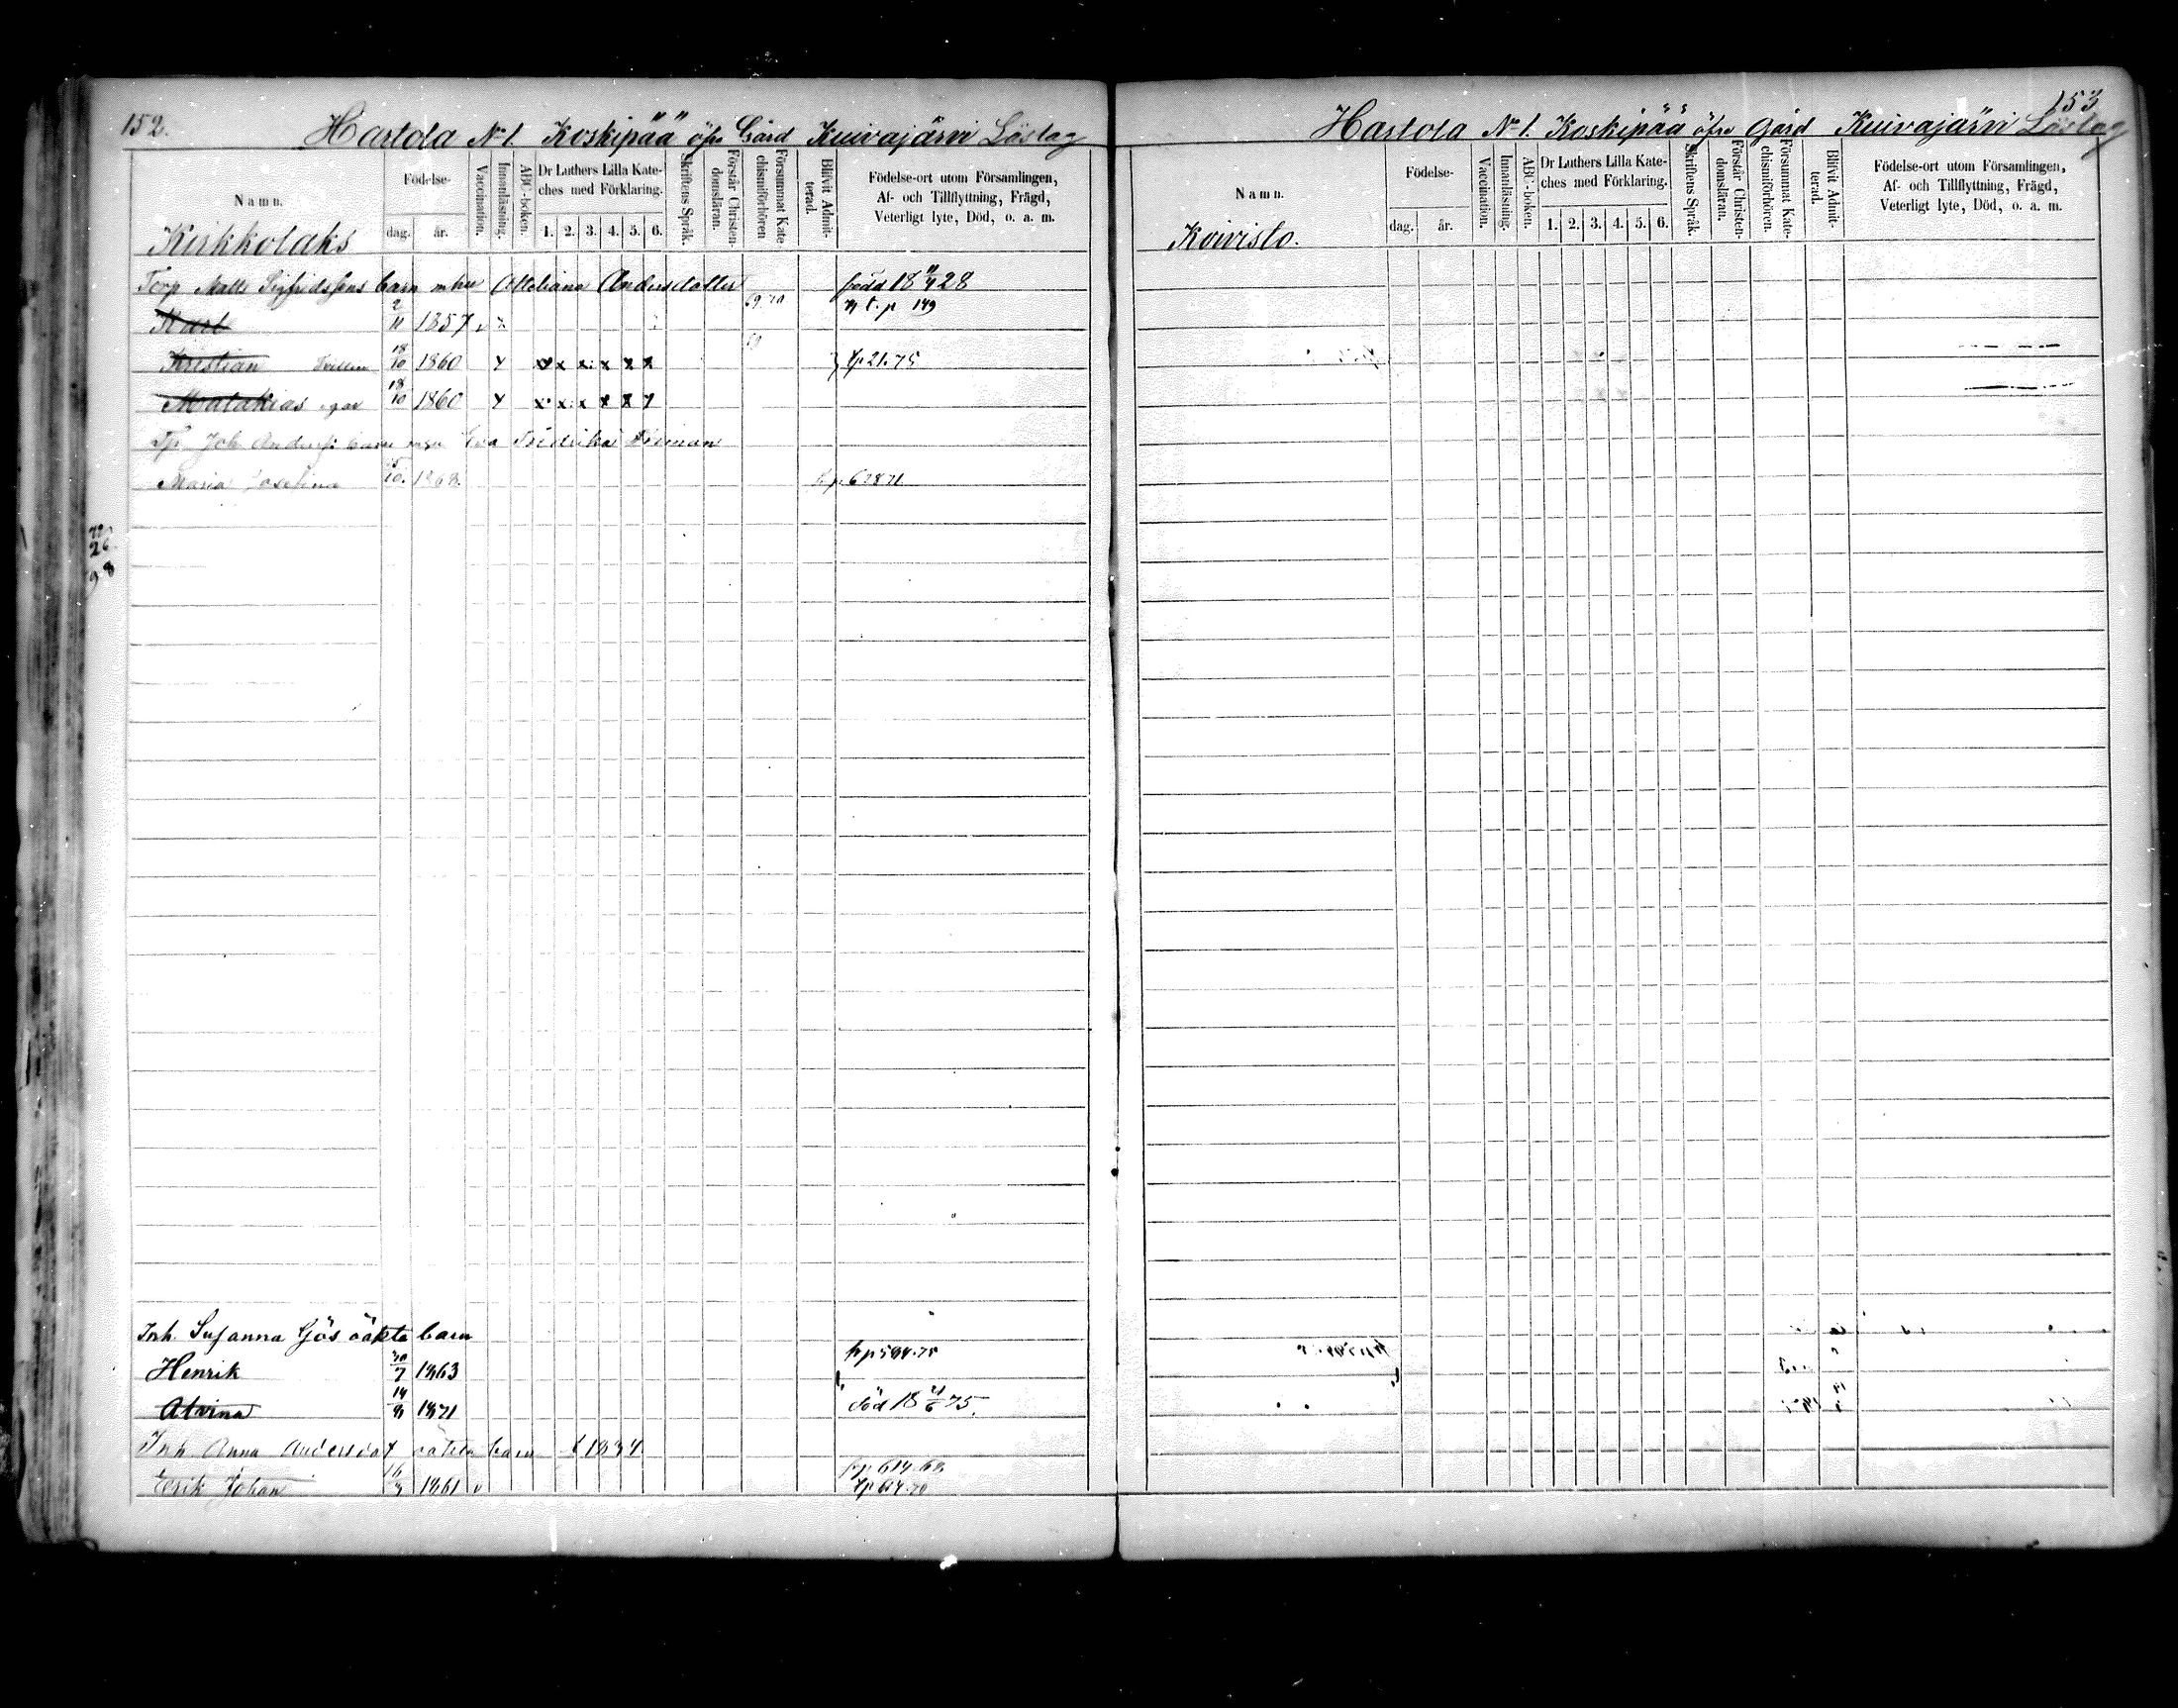 152.
Hartola No 1. Koskipää öfre Gård Kuivajärvi Läslag
Namn.
Födelse-
dag. år.
Vaccination.
Innanläsning.
ABC-boken.
Dr Luthers Lilla Kate-
ches med Förklaring.
1. 2. 3. 4. 5. 6.
Skriftens Språk.
Förstår Christen-
domsläran.
Försummat Kate-
chismiförhören
Blifvit Admit-
terad.
Födelse-ort utom Församlingen,
Af- och Tillflyttning, Frägd,
Veterligt lyte, Död, o. a. m.
Kirkkolaks
Torp Matts Sigfridssons barn m hu Attoliana Andersdotter född 18 11/4 28
Karl 2/11 1857 v x 69. 70 n t. p 149
Kristian 18/10 1860 x x x x x x x 69 tp 21. 75
Malakias 18/10 1860 x x x x x x x
Tp Joh Anderss barn m hu Eva Fredrika Friman
Maria Josefina 15/10. 1868. 6 78 71
26
98
Inh. Susanna Gös oäkta barn
Henrik 30/7 1863 tp 594. 75
Alvina 14/8 1871 död 18 21/6 75.
Inh. Anna Andersdot oäkta barn f 1834
Erik Johan 16/3 1861 v fp 614. 68
tp 614. 70
153
Hartola No 1. Koskipää öfre Gård Kuivajärvi Läslag
Namn.
Födelse-
dag. år.
Vaccination.
Innanläsning.
ABC-boken.
Dr Luthers Lilla Kate-
ches med Förklaring.
1. 2. 3. 4. 5. 6.
Skriftens Språk.
Förstår Christen-
domsläran.
Försummat Kate-
chismiförhören.
Blifvit Admit-
terad.
Födelse-ort utom Församlingen,
Af- och Tillflyttning, Frägd,
Veterligt lyte, Död, o. a. m.
Koivisto.